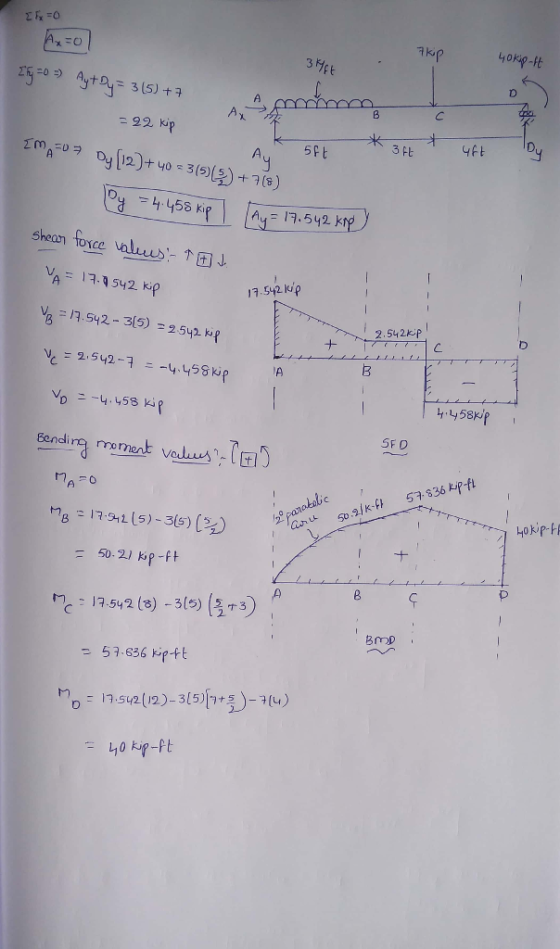 ΣFx=0
Ax=0
ΣFy=0 ⇒ Ay+Dy = 3(5)+7
= 22 kip
ΣMA=0 ⇒ Dy[12]+40 = 3(5)(5/2)+7(8)
Dy = 4.458 kip
Ay = 17.542 kip
3 k/ft
7kip
40kip-ft
Ax
A
B
C
D
Ay
5ft
3ft
4ft
Dy
Shear force values:- ↑+↓
VA = 17.542 kip
VB = 17.542-3(5) = 2.542 kip
VC = 2.542-7 = -4.458 kip
VD = -4.458 kip
17.542kip
2.542kip
+
A
B
C
D
-
4.458kip
SFD
Bending moment values:- (+)
MA=0
MB = 17.542(5)-3(5)(5/2)
= 50.21 kip-ft
MC = 17.542(8)-3(5)(5/2+3)
= 57.836 kip-ft
MD = 17.542(12)-3(5)[7+5/2)-7(4)
= 40 kip-ft
2° parabolic
curve
50.21k-ft
57.836 kip-ft
40kip-ft
+
A
B
C
D
BMD